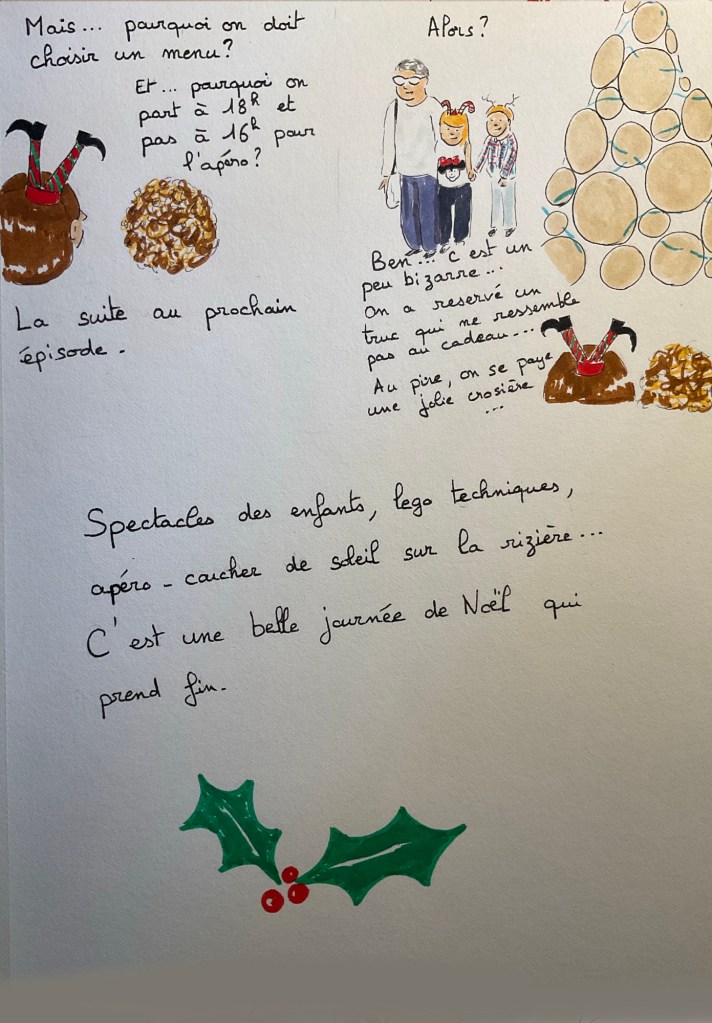 Mais... pourquoi on doit
choisir un menu?
Et... pourquoi on
part à 18h et
pas à 16h pour
l'apéro?
La suite au prochain
épisode.
Alors?
Ben... c'est un
peu bizarre...
On a reservé un
truc qui ne ressemble
pas au cadeau...
Au pire, on se paye
une jolie crosière
...
Spectacles des enfants, lego techniques,
apéro - coucher de soleil sur la rizière...
C'est une belle journée de Noël qui
prend fin.